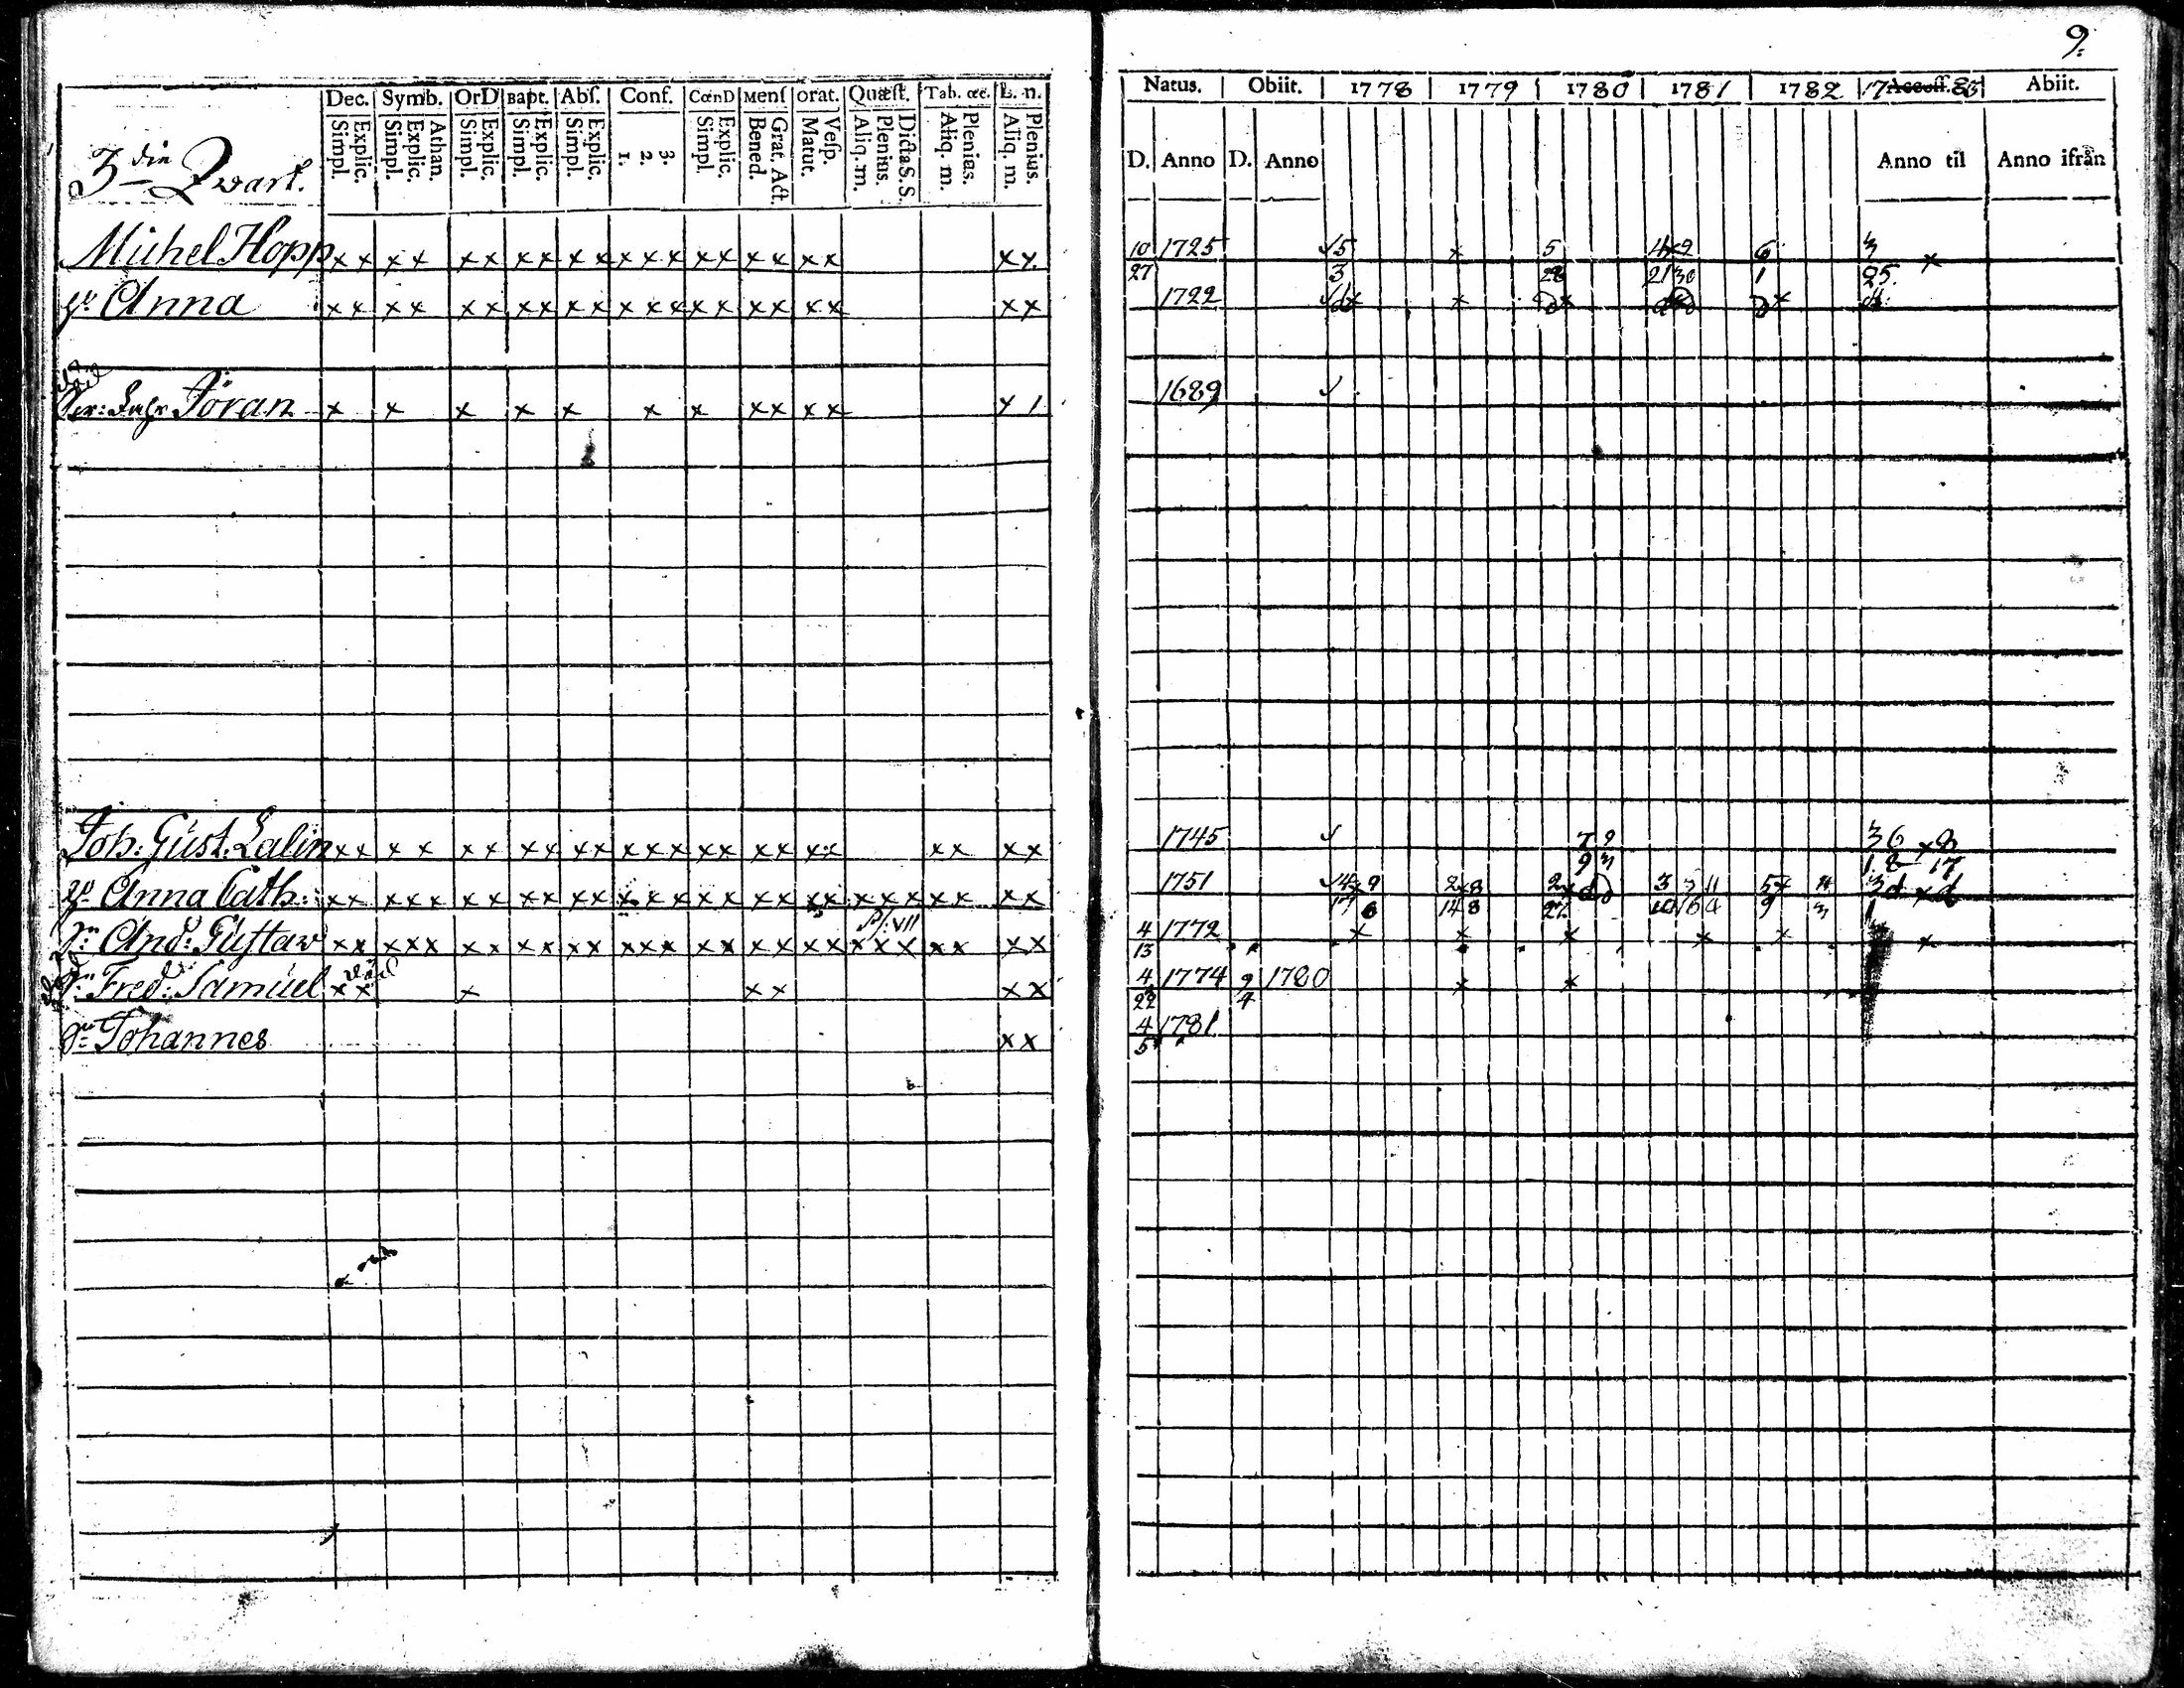 9.
Dec. Symb. OrD Bapt. Abs. Conf. CœnD Mens orat. Quæst. Tab. œc. L. n.
Simpl. Explic. Simpl. Explic. Athan. Simpl. Explic. Simpl. Explic. Simpl. Explic. 1. 2. 3. Simpl. Explic. Bened. Grat. Act. Matut. Vesp. Aliq. m. Plenius. Dicta S. S. Aliq. m. Plenius. Aliq. m. Plenius.
Natus. Obiit. 1778 1779 1780 1781 1782 17 Accoss. 83 Abiit.
D. Anno D. Anno Anno til Anno ifrån
3 die Qwart.
Michel Hopp x x x x x x x x x x x x x x x x x x x x x 10 1725 5 x 5 6 3 x
27 3 28 21 30 1 25
h. Anna x x x x x x x x x x x x x x x x x x x x x 1722 x x x x
död
Jöran x x x x x x x x x x x x 1 1689
Joh: Gust: Lalin x x x x x x x x x x x x x x x x x x x x x x x 1745 7 9 3 6 x 8
9 3 1 8 17
h. Anna Cath: x x x x x x x x x x x x x x x x x x x x x x x x x x x 1751 4 x 9 2 x 8 2 x 3 5 11 5 x 3 d x d
17 6 14 8 27 9 3 1
Ps. VII
Sn And: Gustaw x x x x x x x x x x x x x x x x x x x x x x x x x x x 4 1772 x x x x x x
13
död
Sn Fred: Samuel x x x x x x x 4 1774 9 1780 x x
22 4
Sn Johannes x x 4 1781
5